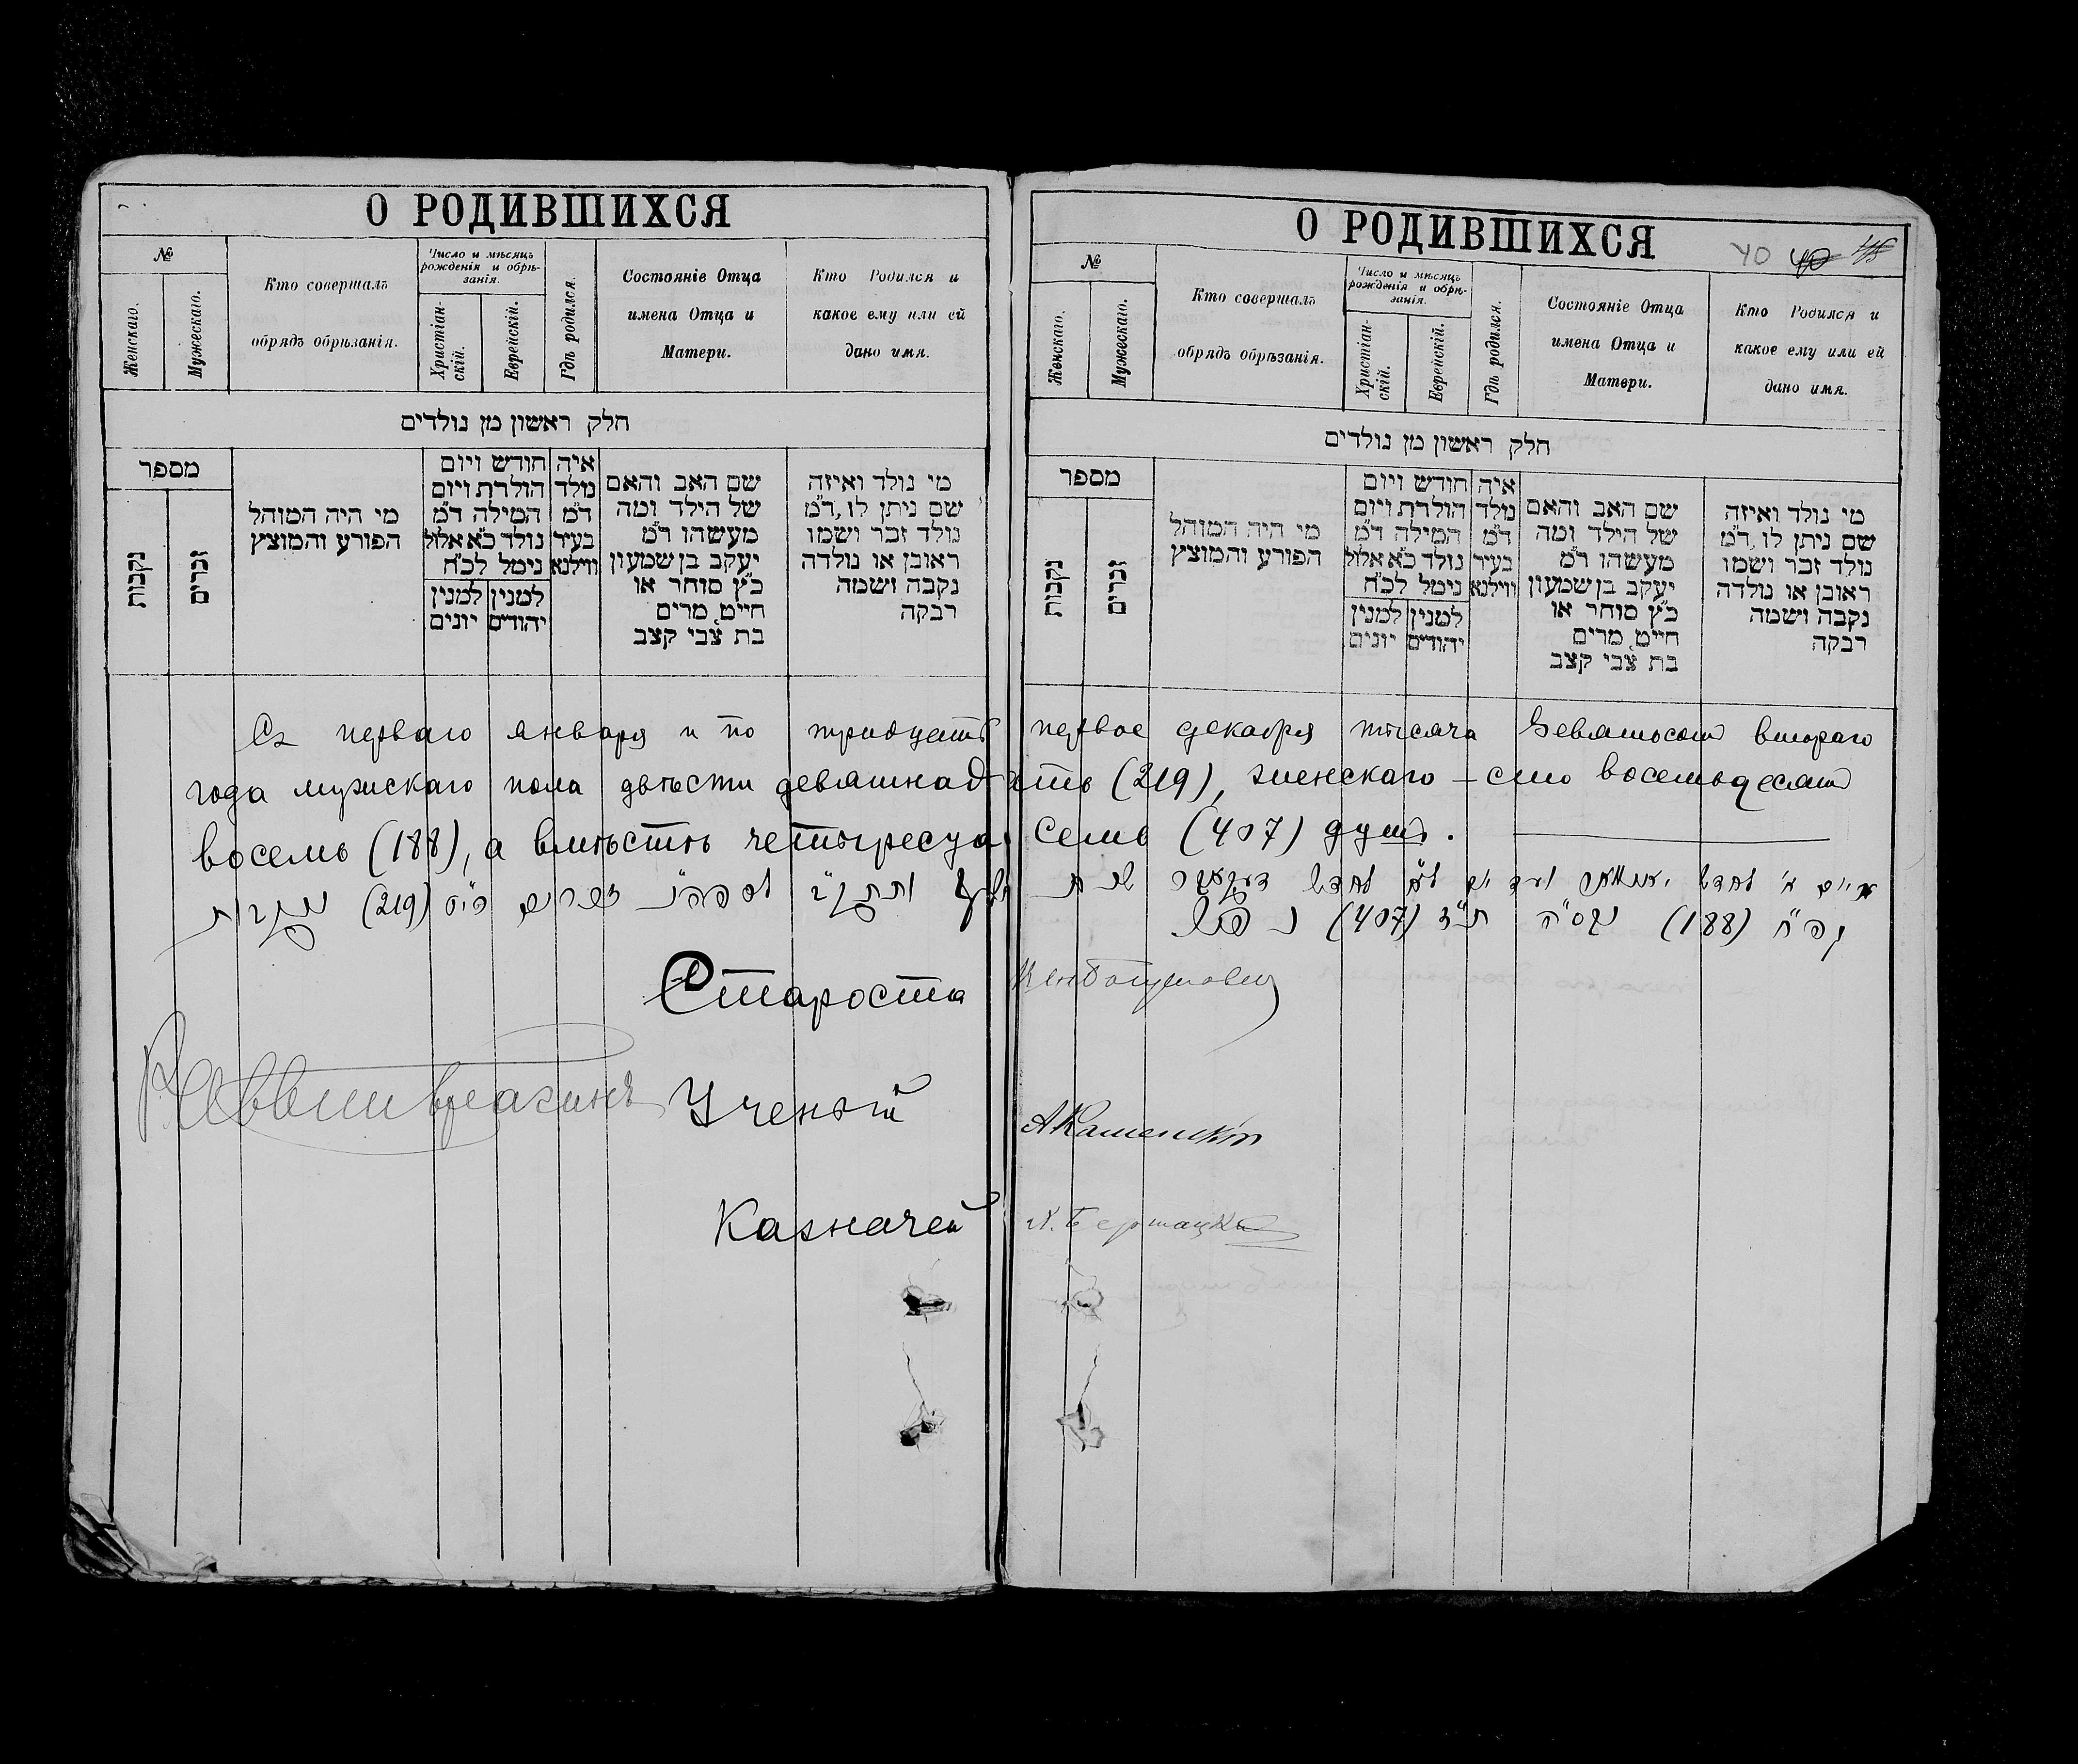 О РОДИВШИХСЯ
№
Женскаго.
Мужескаго.
Кто совершалъ
обрядъ обрѣзанія.
Число и мѣсяцъ
рожденія и обрѣ-
занія.
Христіан-
скій.
Еврейскій.
Гдѣ родился.
Состояніе Отца
имена Отца и
Матери.
Кто Родился и
какое ему или ей
дано имя.
חלק ראשון מן נולדים
מספר
נקבות
זכרים
מי היה המוהל
הפורע והמוצץ
חודש ויום
הולדת ויום
המילה ד״מ
נולד כ״א אלול
נימל לכ״ח
למנין
יהודים
למנין
יונים
איה
נולד
ד״מ
בעיר
ווילנא
שם האב והאם
של הילד ומה
מעשהו ד״מ
יעקב בן שמעון
כ״ץ סוחר או
חייט מרים
בת צבי קצב
מי נולד ואיזה
שם ניתן לו, ד״מ
נולד זכר ושמו
ראובן או נולדה
נקבה ושמה
רבקה
О РОДИВШИХСЯ
40 40 45
№
Женскаго.
Мужескаго.
Кто совершалъ
обрядъ обрѣзанія.
Число и мѣсяцъ
рожденія и обрѣ-
занія.
Христіан-
скій.
Еврейскій.
Гдѣ родился.
Состояніе Отца
имена Отца и
Матери.
Кто Родился и
какое ему или ей
дано имя.
חלק ראשון מן נולדים
מספר
נקבות
זכרים
מי היה המוהל
הפורע והמוצץ
חודש ויום
הולדת ויום
המילה ד״מ
נולד כ״א אלול
נימל לכ״ח
למנין
יהודים
למנין
יונים
איה
נולד
ד״מ
בעיר
ווילנא
שם האב והאם
של הילד ומה
מעשהו ד״מ
יעקב בן שמעון
כ״ץ סוחר או
חייט מרים
בת צבי קצב
מי נולד ואיזה
שם ניתן לו, ד״מ
נולד זכר ושמו
ראובן או נולדה
נקבה ושמה
רבקה
Съ перваго января и по тридцать первое декабря тысяча девятьсот втораго
года мужскаго пола двѣсти девятнадцать (219), женскаго – сто восемьдесят
восемь (188), а вмѣстѣ четыреста семь (407) душъ.
מיום א׳ לחדש יאנואר ועד יום ל״א לחדש דעקעבר שנת
למספרם זכרים רי״ט (219) נקבות
קפ״ח (188) ובס״ה ת״ז (407) נפש
Староста
Раввинъ Врагинъ
Ученый
А Каменскій
Казначей